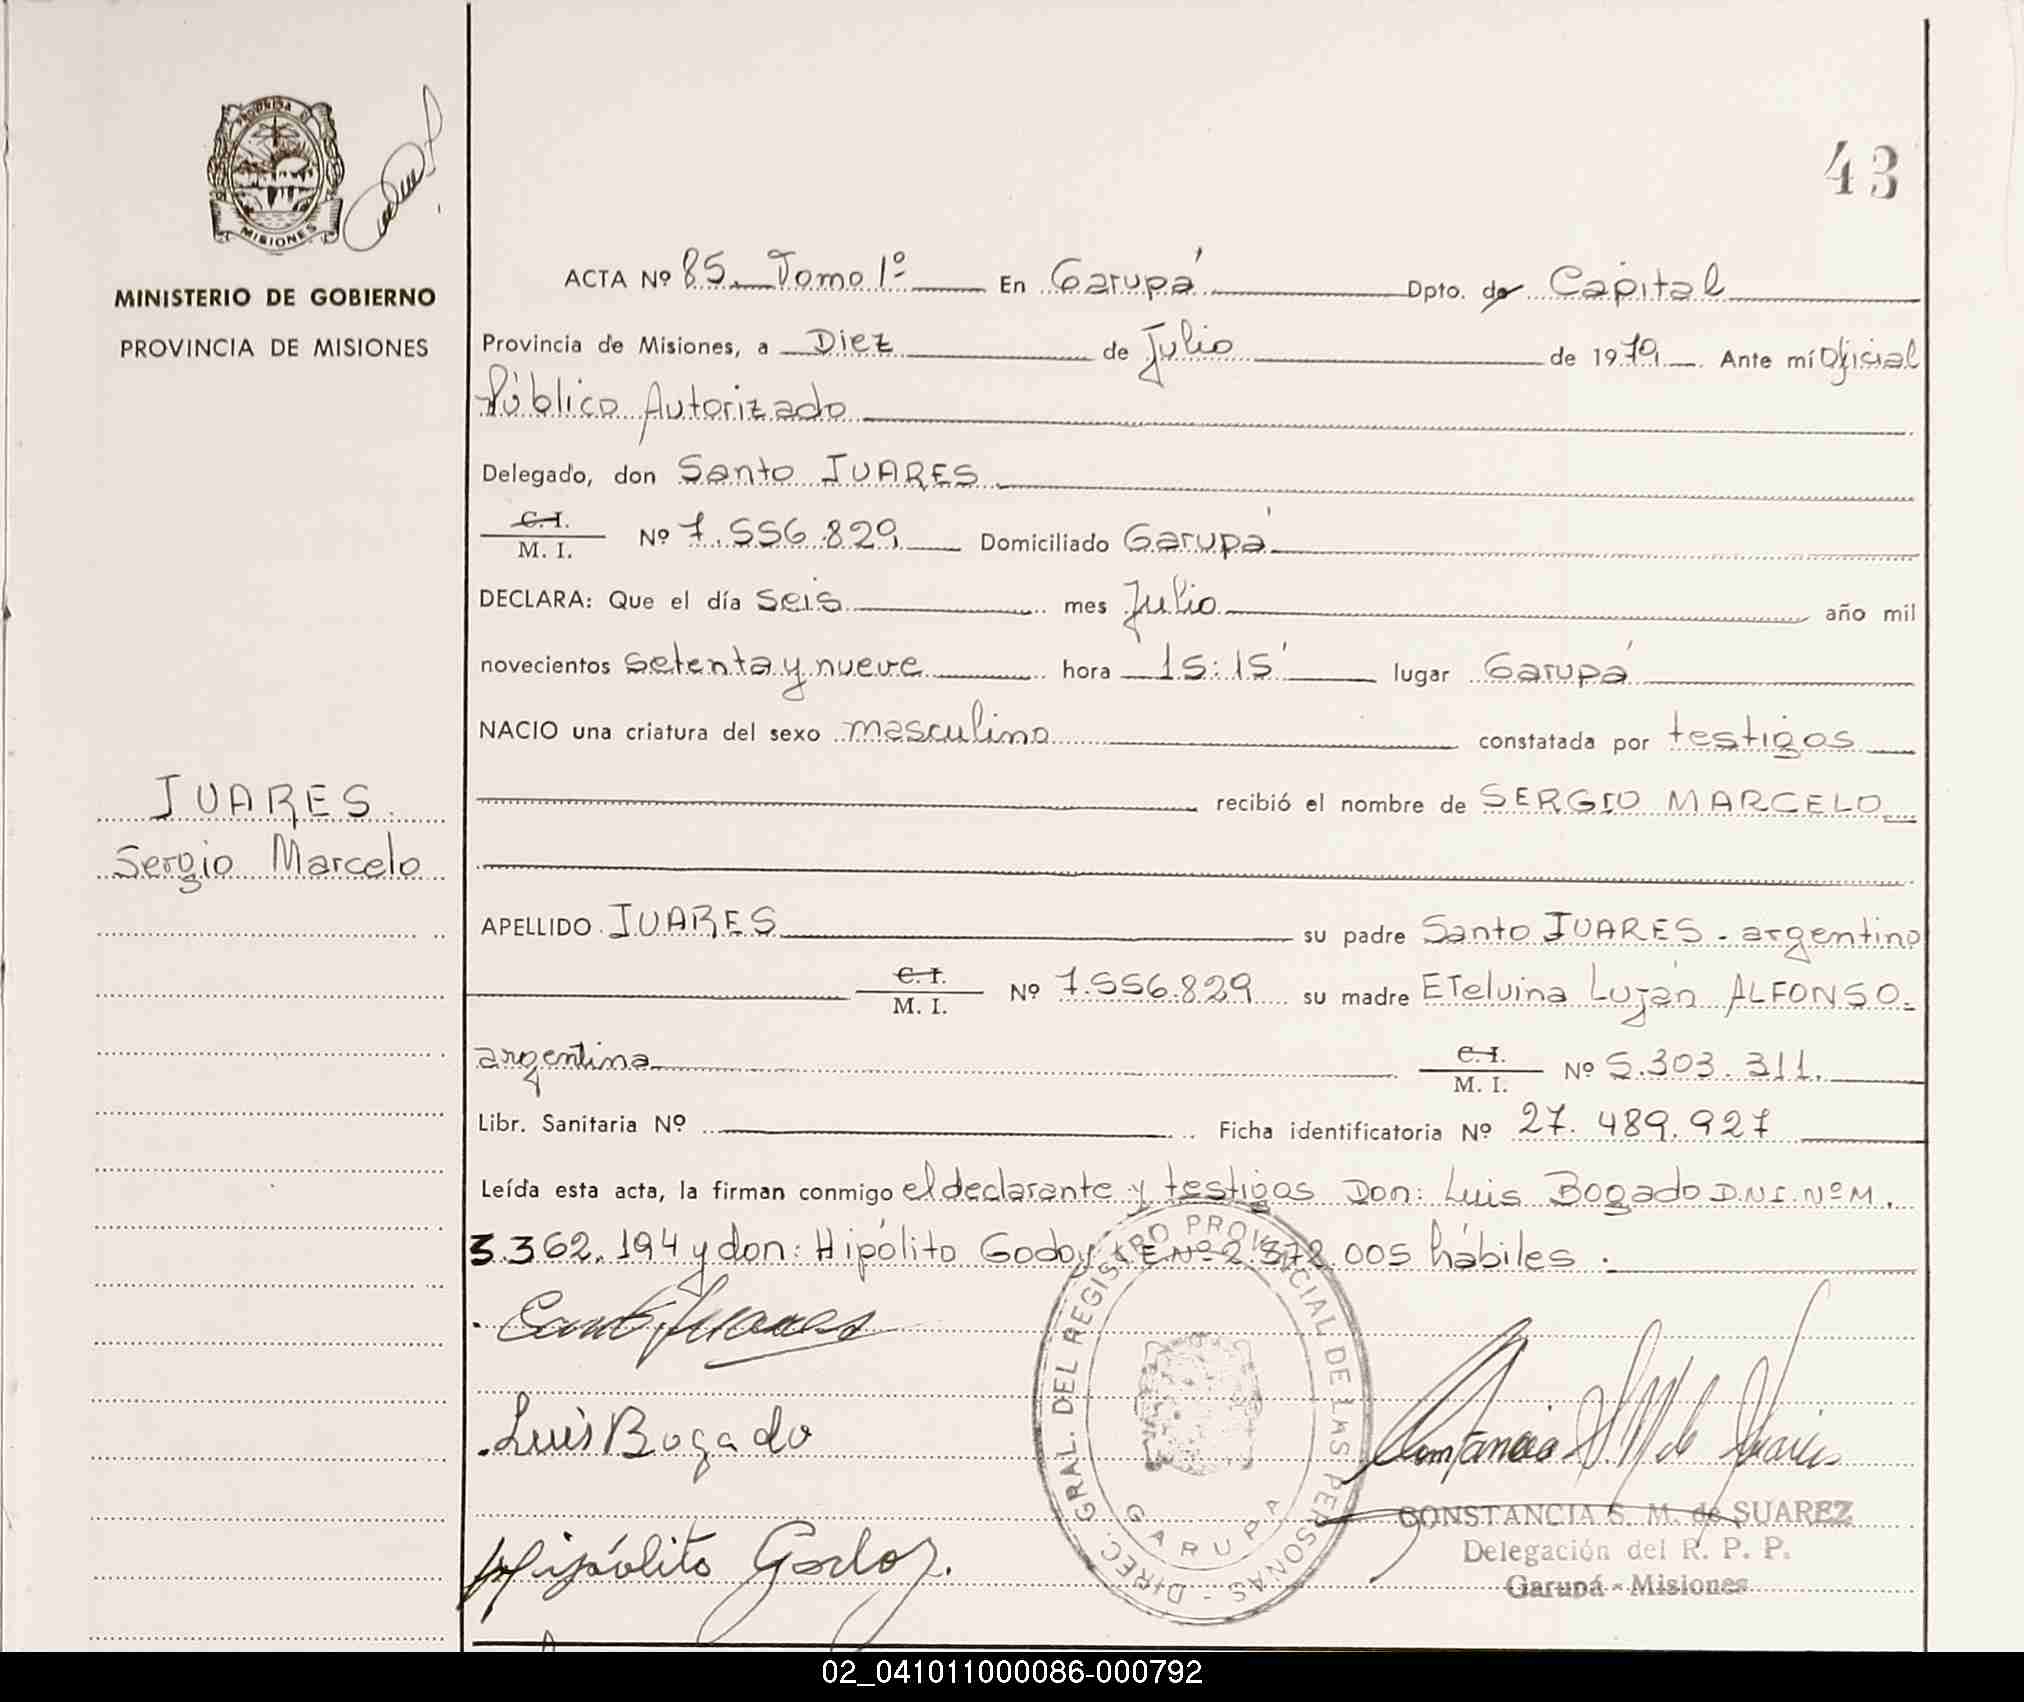 PROVINCIA D
MISIONES
MINISTERIO DE GOBIERNO
PROVINCIA DE MISIONES
43
ACTA Nº 85. Tomo 1º En Garupá Dpto. de Capital
Provincia de Misiones, a Diez de Julio de 1979. Ante mí Oficial
Público Autorizado
Delegado, don Santo JUARES
C. I.
M. I. Nº 7.556.829 Domiciliado Garupá
DECLARA: Que el día seis mes Julio año mil
novecientos setenta y nueve hora 15:15' lugar Garupá
NACIO una criatura del sexo masculino constatada por testigos
recibió el nombre de SERGIO MARCELO
JUARES
Sergio Marcelo
APELLIDO JUARES su padre Santo JUARES - argentino
C. I.
M. I. Nº 7.556.829 su madre Etelvina Luján ALFONSO.
argentina C. I.
M. I. Nº 5.303.311.
Libr. Sanitaria Nº Ficha identificatoria Nº 27.489.927
Leída esta acta, la firman conmigo el declarante y testigos Don: Luis Bogado D.N.I. Nº M.
3.362.194 y don: Hipólito Godoy LE Nº 2.872.005 hábiles.
Santo Juares
Luis Bogado
Hipólito Godoy.
DIREC. GRAL. DEL REGISTRO PROVINCIAL DE LAS PERSONAS -
GARUPA
CONSTANCIA S. M. de SUAREZ
Delegación del R. P. P.
Garupá - Misiones
02_041011000086-000792